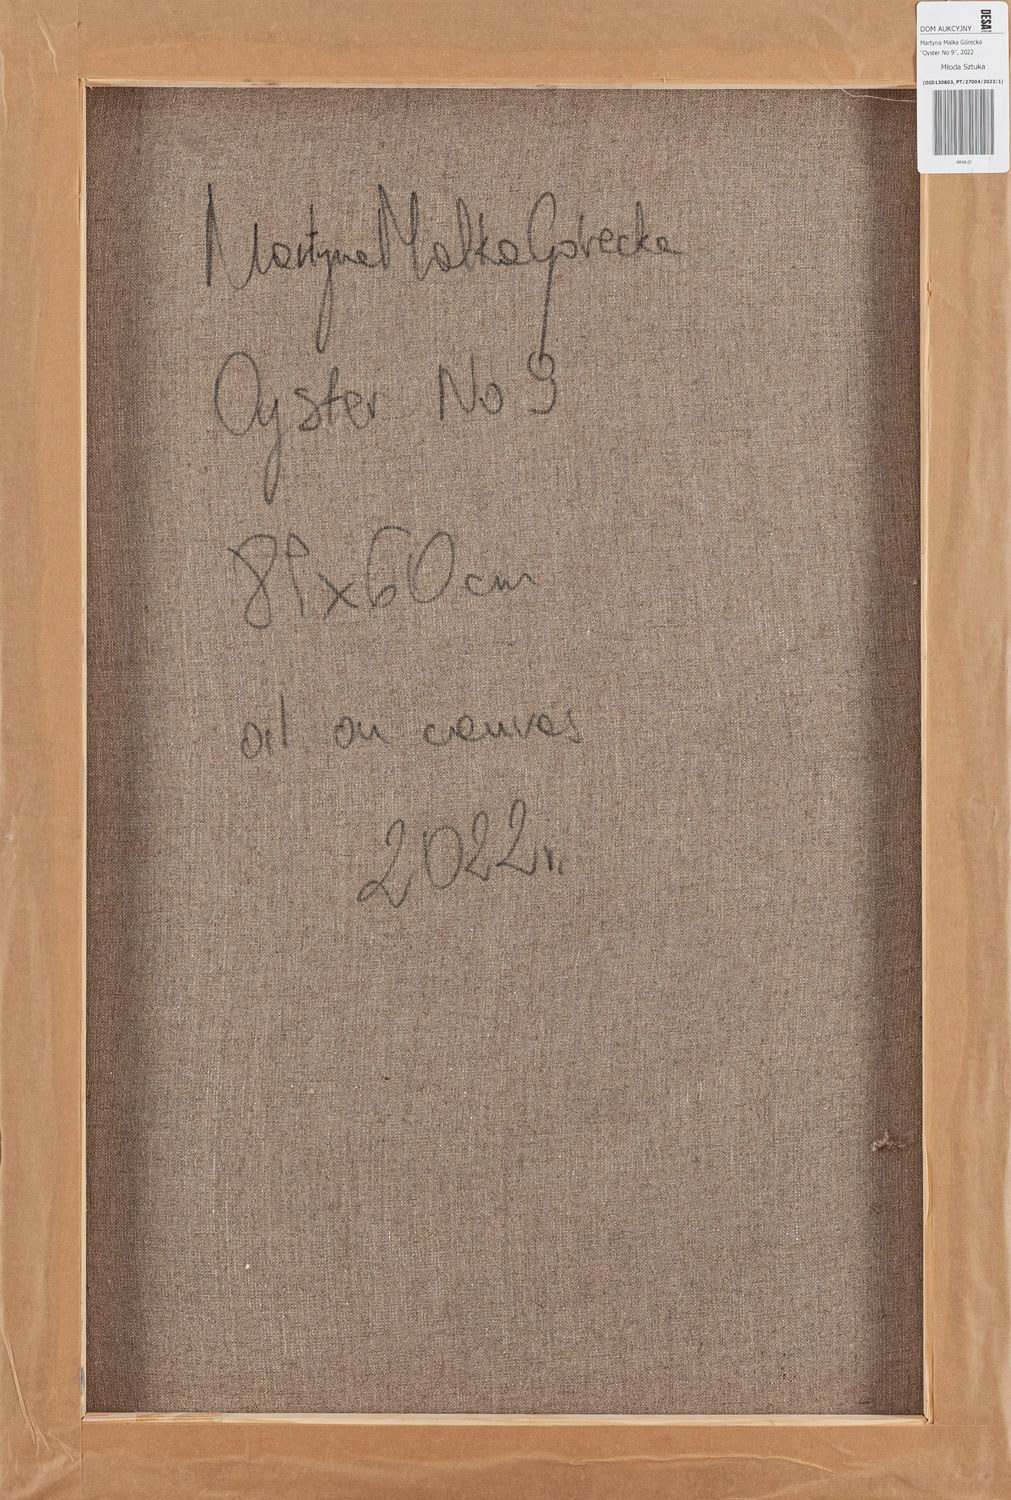 DESA
DOM AUKCYJNY
Martyna Malka Górecka
"Oyster No 9", 2022
Młoda Sztuka
(00D130803, PT/27004/2023/1)
desa.pl
Martyna Malka Górecka
Oyster No 9
89x60cm
oil on canvas
2022r.